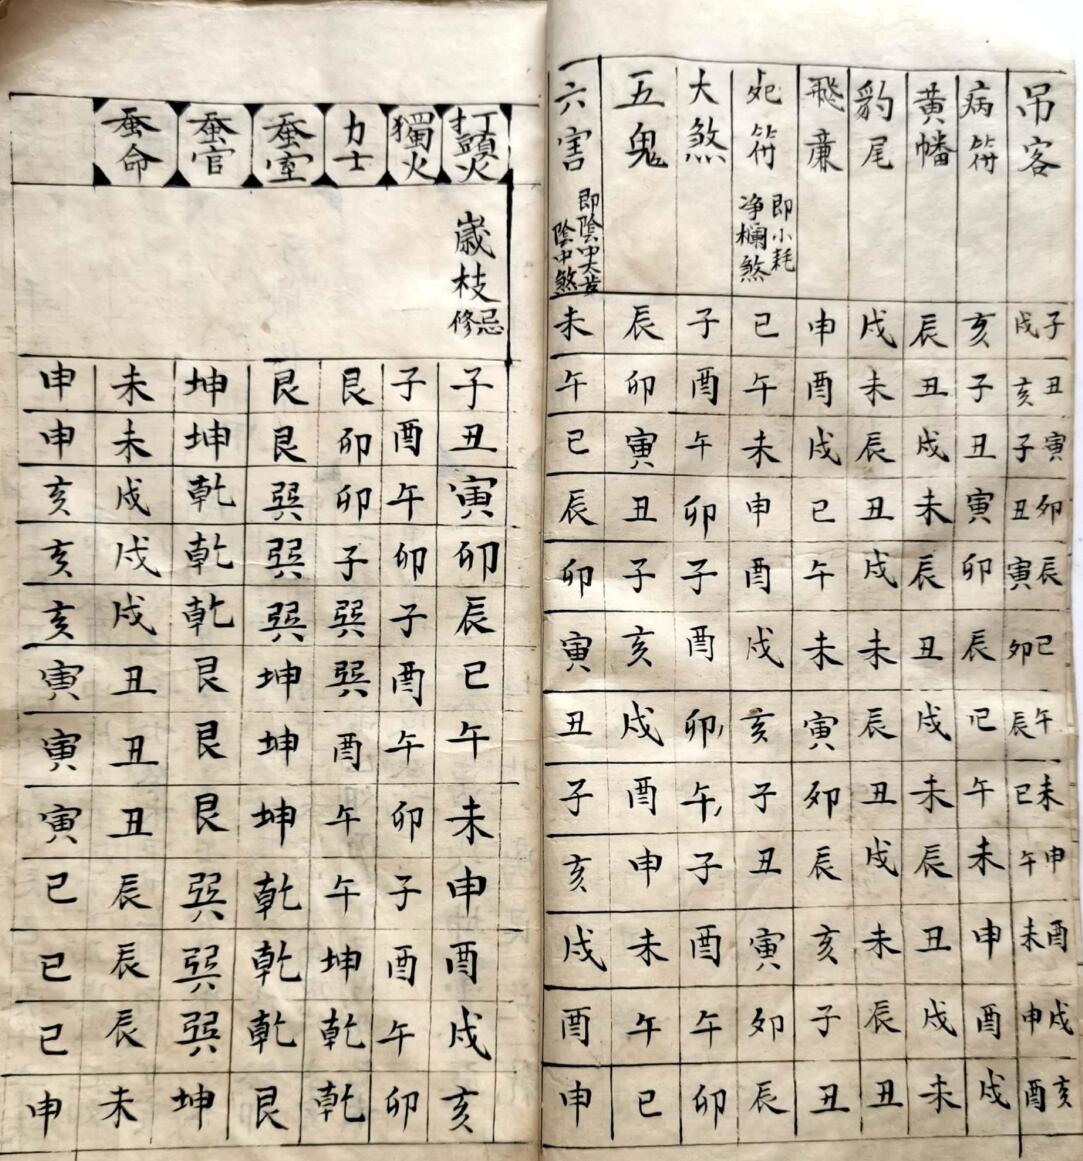 吊客
子丑寅卯辰巳午未申酉戌亥
戌亥子丑寅卯辰巳午未申酉
病符 亥子丑寅卯辰巳午未申酉戌
黄幡 辰丑戌未辰丑戌未辰丑戌未
豹尾 戌未辰丑戌未辰丑戌未辰丑
飛廉 申酉戌巳午未寅卯辰亥子丑
死符
即小耗
净欄煞
巳午未申酉戌亥子丑寅卯辰
大煞 子酉午卯子酉卯午子酉午卯
五鬼 辰卯寅丑子亥戌酉申未午巳
六害
即陰中太歲
陰中煞
未午巳辰卯寅丑子亥戌酉申
打頭火
歲枝
忌
修
子丑寅卯辰巳午未申酉戌亥
獨火 子酉午卯子酉午卯子酉午卯
力士 艮卯卯子巽巽酉午午坤乾乾
蚕室 艮艮巽巽巽坤坤坤乾乾乾艮
蚕官 坤坤乾乾乾艮艮艮巽巽巽坤
蚕命 未未戌戌戌丑丑丑辰辰辰未
申申亥亥亥寅寅寅巳巳巳申